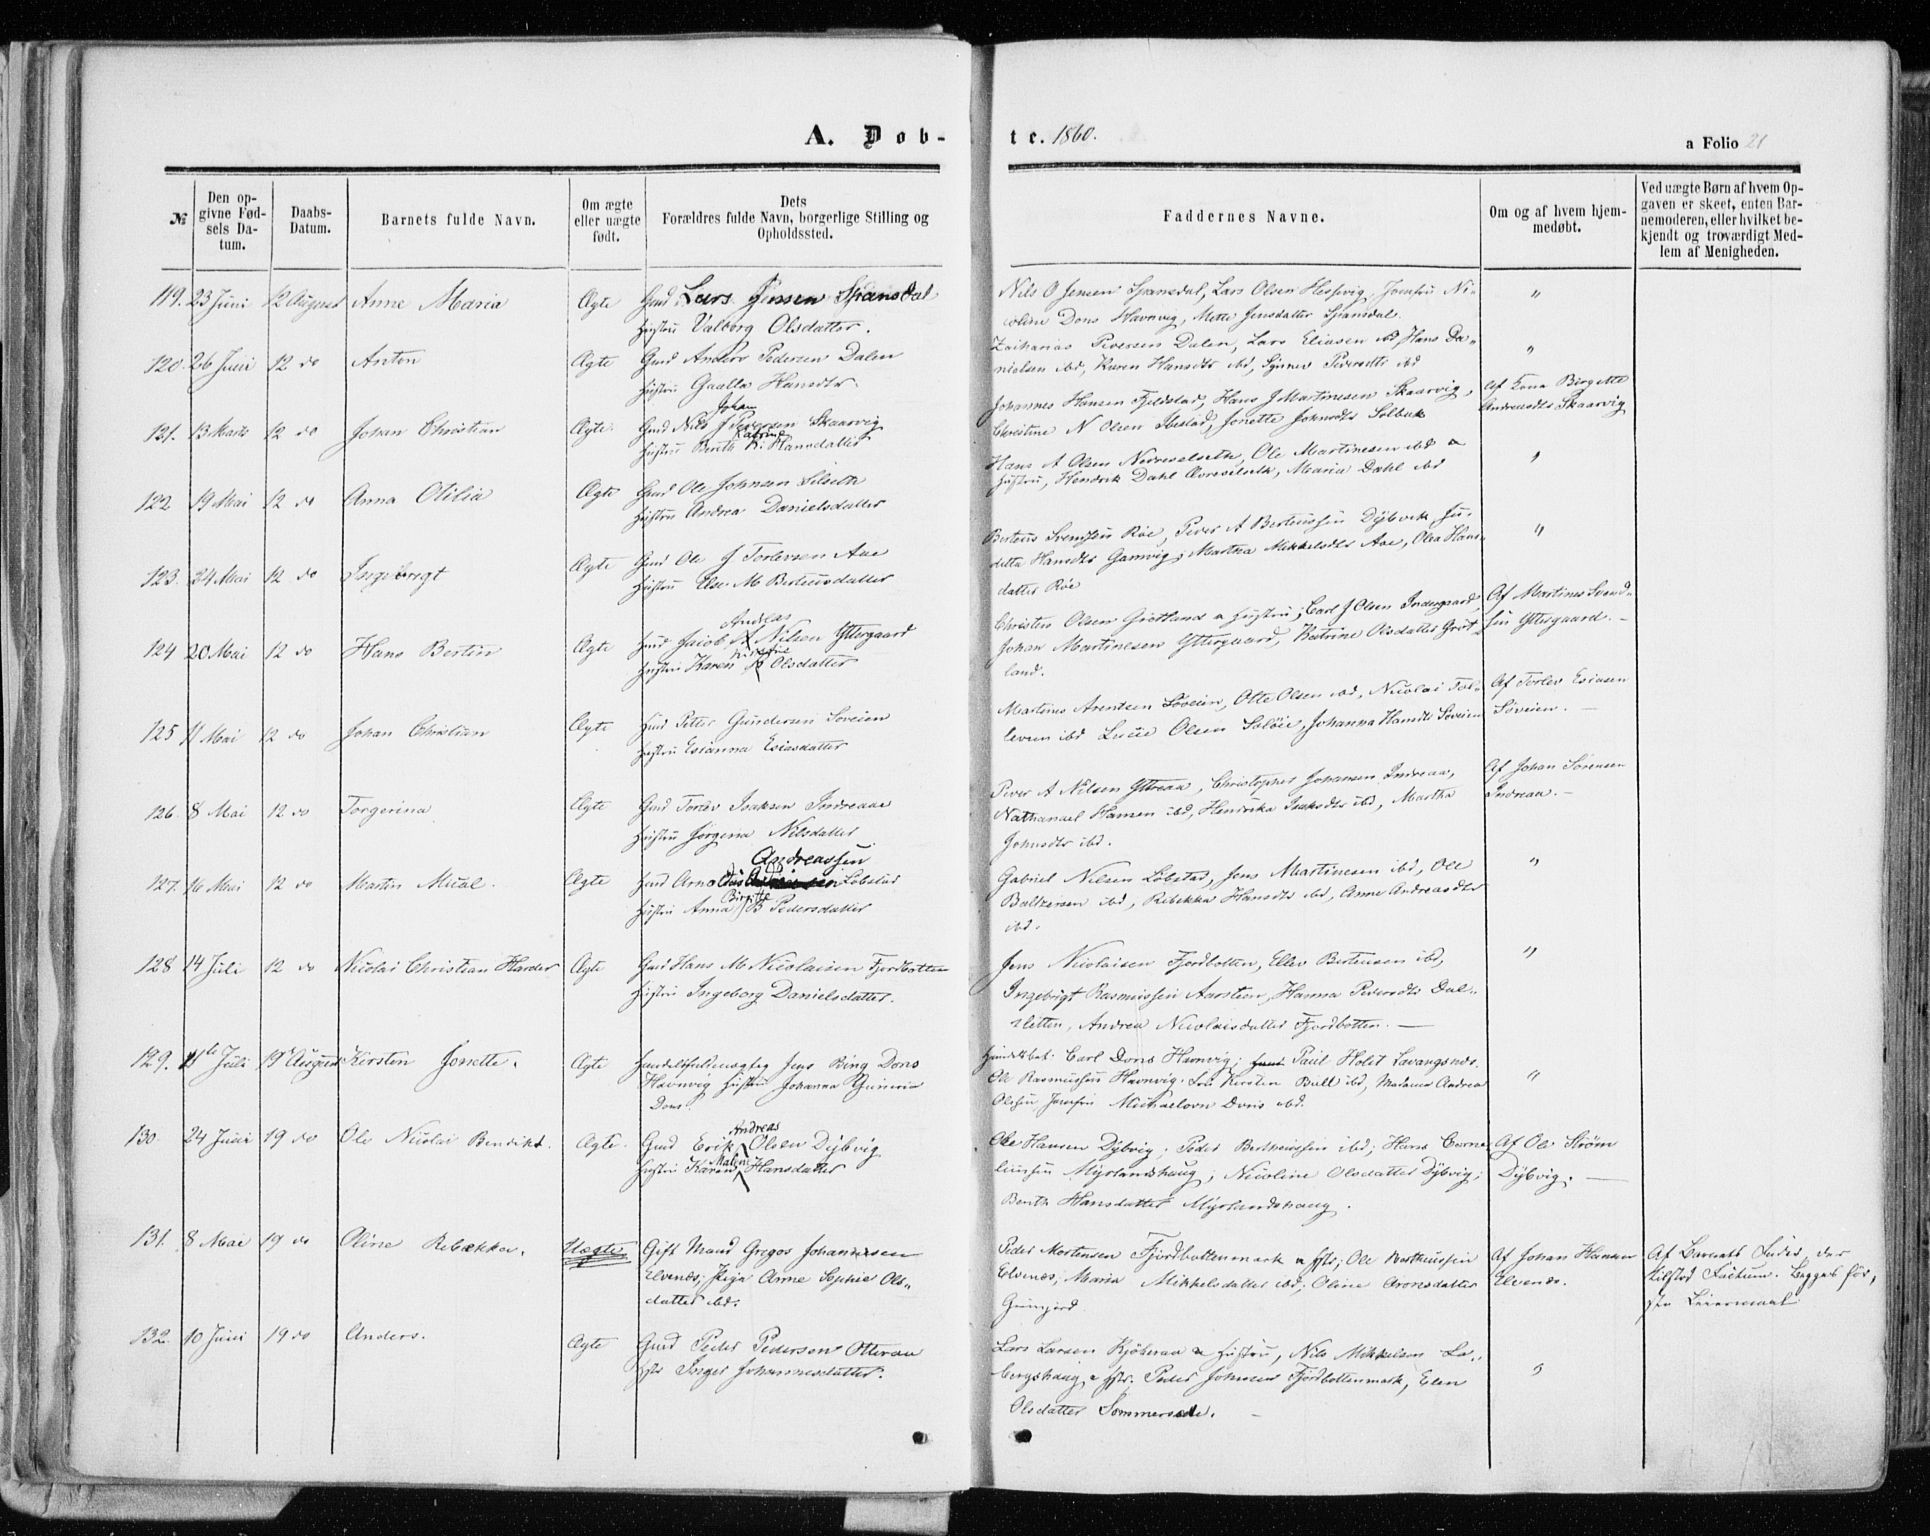 A. Døb-
te. 1860.
a Folio 21
№
Den op-
givne Fød-
sels Da-
tum.
Daabs-
Datum.
Barnets fulde Navn.
Om ægte
eller uægte
født.
Dets
Forældres fulde Navn, borgerlige Stilling og
Opholdssted.
Faddernes Navne.
Om og af hvem hjem-
medøbt.
Ved uægte Børn af hvem Op-
gaven er skeet, enten Bar-
nemoderen, eller hvilket be-
kjendt og troværdigt Med-
lem af Menigheden.
119. 23 Juni 12 August Anne Maria Ægte Gmd Lars Jensen Spansdal
Hustru Valborg Olsdatter.
Nils O Jensen Spansdal, Lars Olsen Hessevig, Jomfru Ni-
coline Dons Havnvig, Mette Jensdatter Spansdal.
"
120. 26 Juni 12 do Anton Ægte Gmd Anders Pedersen Dalen
Hustru Gaalla Hansdtr
Zacharias Pedersen Dalen, Lars Eliasen ibd, Hans Da-
nielsen ibd, Karen Hansdtr ibd, Synnev Pedersdtr ibd
"
121. 13 Marts 12 do Johan Christian Ægte Gmd Nils J Pedersen Skaarvig
Johan
Hustru Berith K. Hansdatter
Katrine
Johannes Hansen Fjeldstad, Hans J Martinesen Skaarvig,
Christine N Olsen Ibestad, Jonette Johnsdtr Solbak
Af Kona Birgitte
Andreasdtr Skaarvig
122 19 Mai 12 do Anna Otilia Ægte Gmd Ole Johnsen Silseth
Hustru Andrea Danielsdatter
Hans A Olsen Nedreselseth, Ole Martinesen ibd &
Hustru, Hendrik Dahl Øvreselseth, Maria Dahl ibd
"
123. 24 Mai 12 do Ingebrigt Ægte Gmd Ole J Torlevsen Aae
Hustru Else M Berteusdatter
Berteus Svendsen Røe, Peder A Berteussen Dybvik, Ju-
ditta Hansdtr Gamvig, Martha Mikkelsdtr Aae, Olea Hans-
datter Røe
"
124 20 Mai 12 do Hans Bertin Ægte Gmd Jacob A Nilsen Yttergaard
Andreas
Hustru Karen K Olsdatter
Kirstine
Christen Olsen Grötland & Hustru; Carl J Olsen Indergaard,
Johan Martinesen Yttergaard, Katrine Olsdatter Grøt-
land.
Af Martines Svend-
sen Yttergaard. —
125 11 Mai 12 do Johan Christian Ægte Gmd Petter Gundersen Søveien
Hustru Esianna Esiasdatter
Martines Arentsen Søveien, Otte Olsen ibd, Nicolai Tol-
levsen ibd Lucie Olsen Soløie, Johanna Hansdtr Søveien
Af Torlev Esiasen
Søveien. —
126. 8 Mai 12 do Torgerina Ægte Gmd Torlev Isaksen Indreaae
Hustru Jørgena Nilsdatter
Peder A Nilsen Yttreaa, Christopher Johansen Indreaa,
Nathanael Hansen ibd, Hendrika Isaksdtr ibd, Martha
Johnsdtr ibd.
Af Johan Sørensen
Indreaa. —
127. 16 Mai 12 do Martin Mical. Ægte Gmd Arnoldus Løbstad
Andreassen
Hustru Anna B Pedersdatter
Birgitte
Gabriel Nilsen Løbstad, Jens Martinesen ibd, Ole
Baltzersen ibd, Rebekka Hansdtr ibd, Anne Andreasdtr
ibd.
"
128 14 Juli 12 do Nicolai Christian Harder Ægte Gmd Hans M Nicolaisen Fjordbotten
Hustru Ingeborg Danielsdatter.
Jens Nicolaisen Fjordbotten, Ellev Berteusen ibd,
Ingebrigt Rasmussen Aarsten, Hanna Pedersdtr Dal-
sletten, Andrea Nicolaisdatter Fjordbotten. —
"
129. 11te Juli 19 August Kirsten Jonette. Ægte Handelsfuldmægtig Jens Bing Dons
Havnvig Hustru Johanna
Dons.
Handelsbet. Carl Dons Havnvig; Paul Holst Lavangsnes.
Ole Rasmussen Havnvig. Kirsten Bull ibd, Madame Andrea
Olsen, Jomfru Dons ibd.
"
130 24 Juni 19 do Ole Nicolai Bendikt. Ægte. Gmd Erik Olsen Dybvig
Andreas
Hustru Karen Hansdatter
Malene
Ole Hansen Dybvig; Peder Bertheussen ibd; Hans Corne-
liussen Myrlandshaug; Nicoline Olsdatter Dybvig;
Berith Hansdatter Myrlandshaug.
Af Ole Strøm
Dybvig. —
131. 8 Mai 19 do Oline Rebækka. Uægte Gift Mand Gregos Johannesen
Elvenes; Pige Anne Sophie Ols-
datter ibd.
Peder Mortensen Fjordbottenmark & Hstr; Ole
Elvenes; Maria Mikkelsdatter ibd; Oline Aronsdatter
Af Johan Hansen
Elvenes.
Af Barnets Fader, der
tilstod Factum. Begges før-
ste Leiermaal
132. 10 Juni 19 do Anders. Ægte Gmd Peder Pedersen Otteraa
Hstr Inger Johannesdatter.
Lars Larsen Kjøbenaa & Hustru, Nils Mikkelsen La-
bergshaug & Hstr. Peder Johnsen Fjordbottenmark, Elen
Olsdatter Sommersæde. —
"